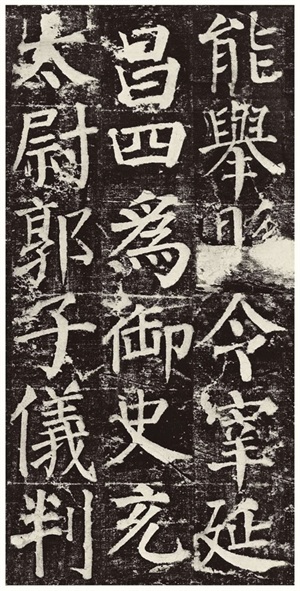 能舉縣令宰延
昌四為御史充
太尉郭子儀判